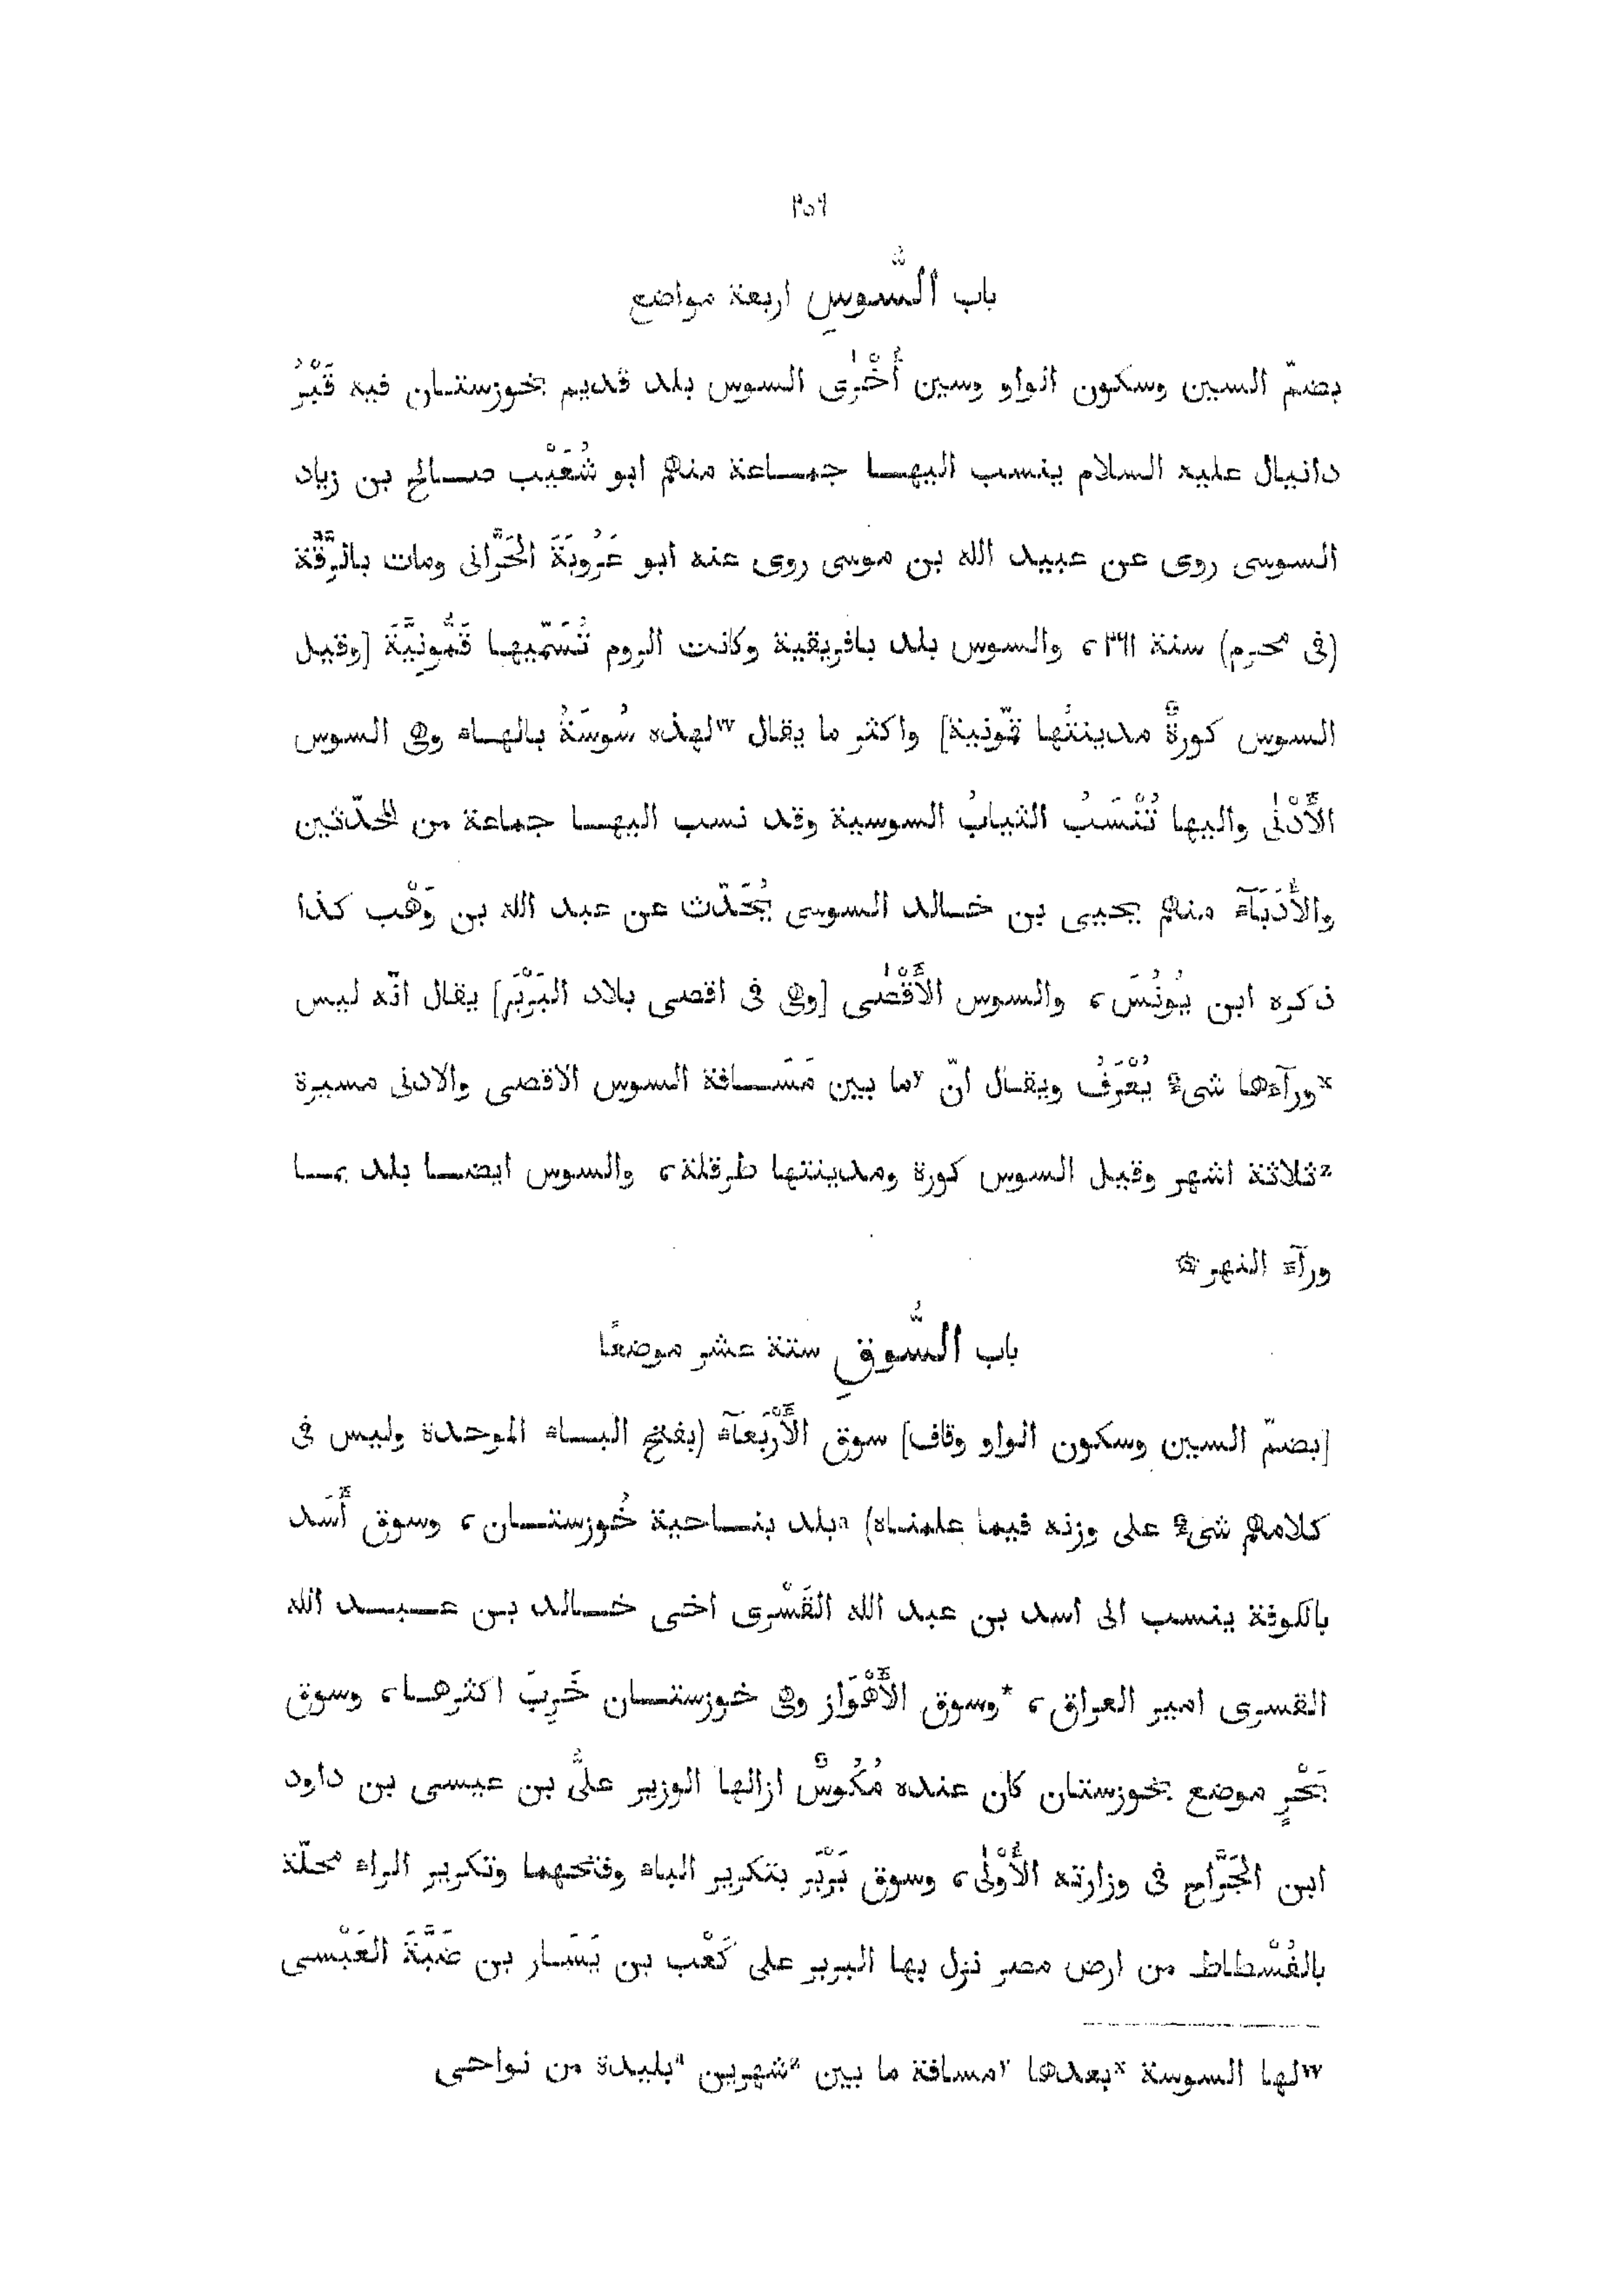 ٣٥٩
باب السُّوسِ اربعة مواضع
بضمّ السين وسكون الواو وسين أُخْرٰى السوس بلد قديم بخوزستان فيه قَبْرُ
دانيال عليه السلام ينسب اليها جماعة منهم ابو شُعَيْب صالح بن زياد
السوسى روى عن عبيد الله بن موسى روى عنه ابو عَرُوبَةَ الحَرَّانى ومات بالرَّقَّة
(فى محرم) سنة ٢٦١، والسوس بلد بافريقية وكانت الروم تُسَمّيها قَمُّونِيَّةَ [وقيل
السوس كورةٌ مدينتُها قمّونية] واكثر ما يقال wلهذه سُوسَةُ بالهاء وهى السوس
الأَدْنٰى واليها تُنْسَبُ الثيابُ السوسية وقد نسب اليها جماعة من المحدّثين
والأُدَبَآء منهم يحيى بن خالد السوسى يُحَدّث عن عبد الله بن وَهْب كذا
ذكره ابن يُونُسَ، والسوس الأَقْصٰى [وهى فى اقصى بلاد البَرْبَر] يقال انّه ليس
xورآءها شىءٌ يُعْرَفُ ويقال انّ yما بين مَسَافة السوس الاقصى والادنى مسيرة
zثلاثة اشهر وقيل السوس كورة ومدينتها طرقلة، والسوس ايضا بلد بما
ورآء النهر ۞
باب السُّوقِ ستة عشر موضعًا
[بضمّ السين وسكون الواو وقاف] سوق الأَرْبَعَآء (بفتح الباء الموحدة وليس فى
كلامهم شىءٌ على وزنه فيما علمناه) aبلد بناحية خُوزستان، وسوق أَسَد
بالكوفة ينسب الى اسد بن عبد الله القَسْرى اخى خالد بن عبد الله
القسرى امير العراق، *وسوق الأَهْوَاز وهى خوزستان خَرِبَ اكثرها، وسوق
بَحْرٍ موضع بخوزستان كان عنده مُكُوسٌ ازالها الوزير علىُّ بن عيسى بن داود
ابن الجَرَّاح فى وزارته الأُولٰى، وسوق بَرْبَر بتكرير الباء وفتحهما وتكرير الراء محلّة
بالفُسْطاط من ارض مصر نزل بها البربر على كَعْب بن يَسَار بن ضَبَّةَ العَبْسى
wلها السوسة xبعدها yمسافة ما بين zشهرين aبليدة من نواحى